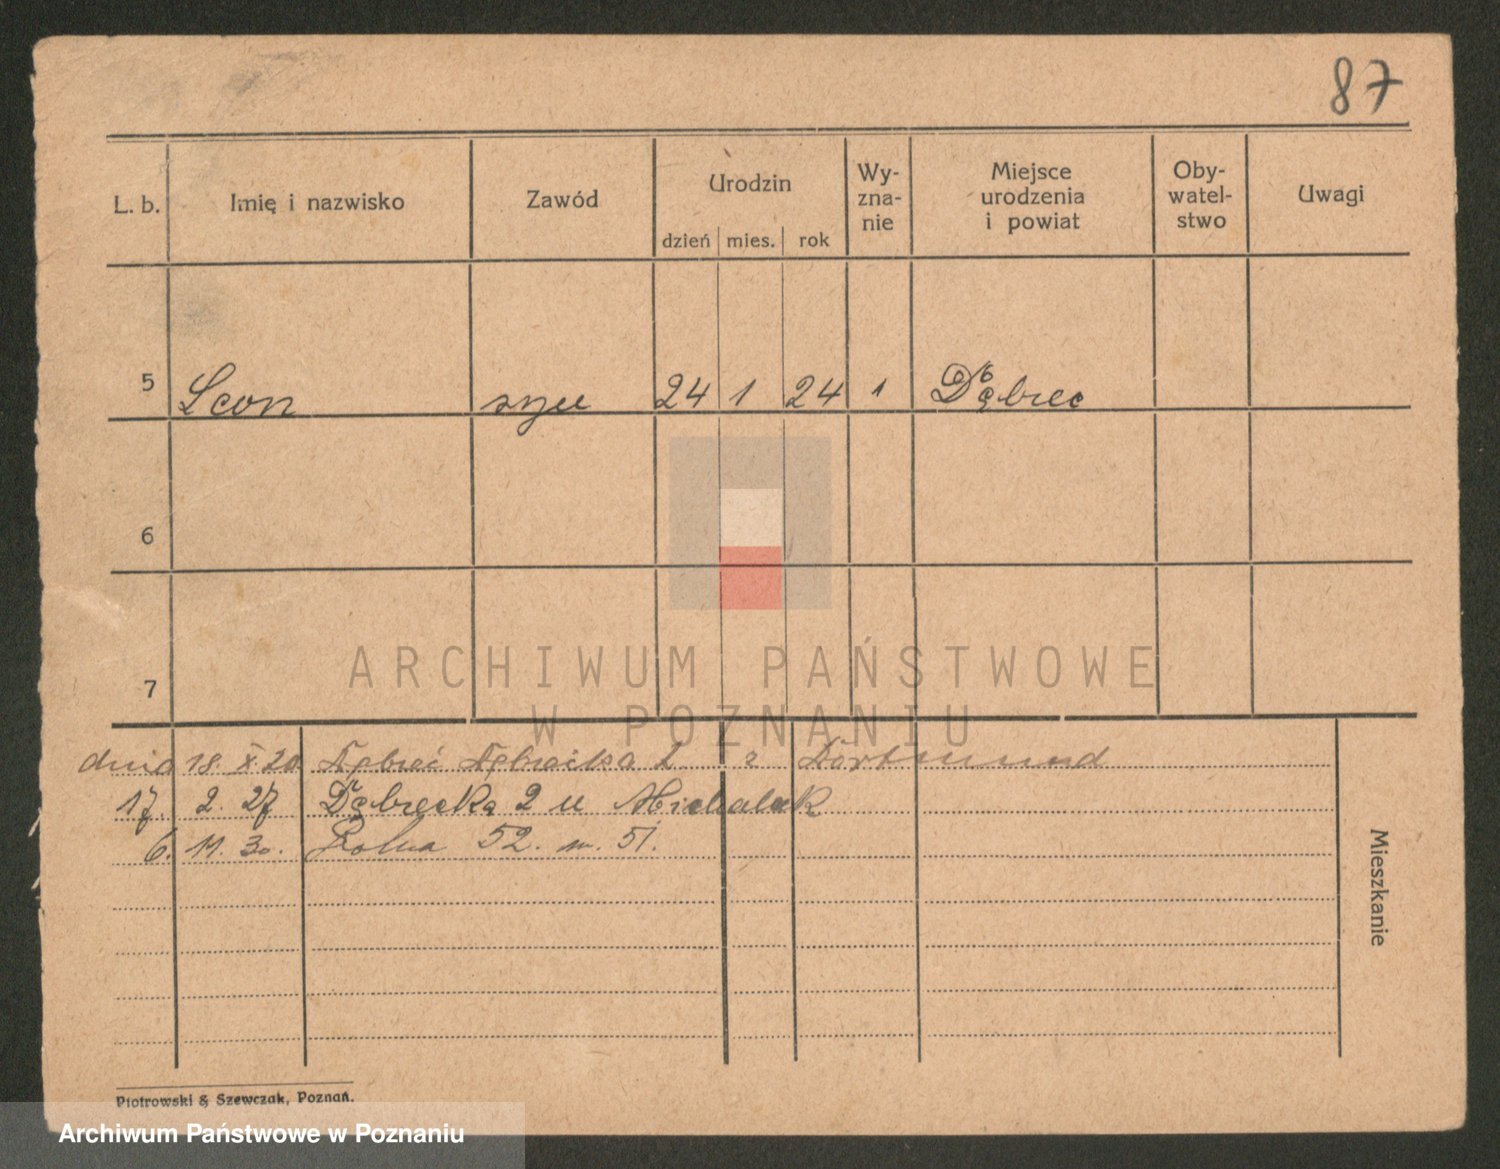 87
L. b. Imię i nazwisko Zawód Urodzin dzień mies. rok Wy-zna-nie Miejsce urodzenia i powiat Oby-watel-stwo Uwagi
5 Leon syn 24 1 24 1 Dębiec
6
7
ARCHIWUM PAŃSTWOWE
W POZNANIU
dnia 18 X 20 Dębiec Dębiecka 2 z Dortmund
17. 2. 27 Dębiecka 2 u Michalak
6. 11. 30. Rolna 52. m. 51.
Mieszkanie
Piotrowski & Szewczak, Poznań.
Archiwum Państwowe w Poznaniu